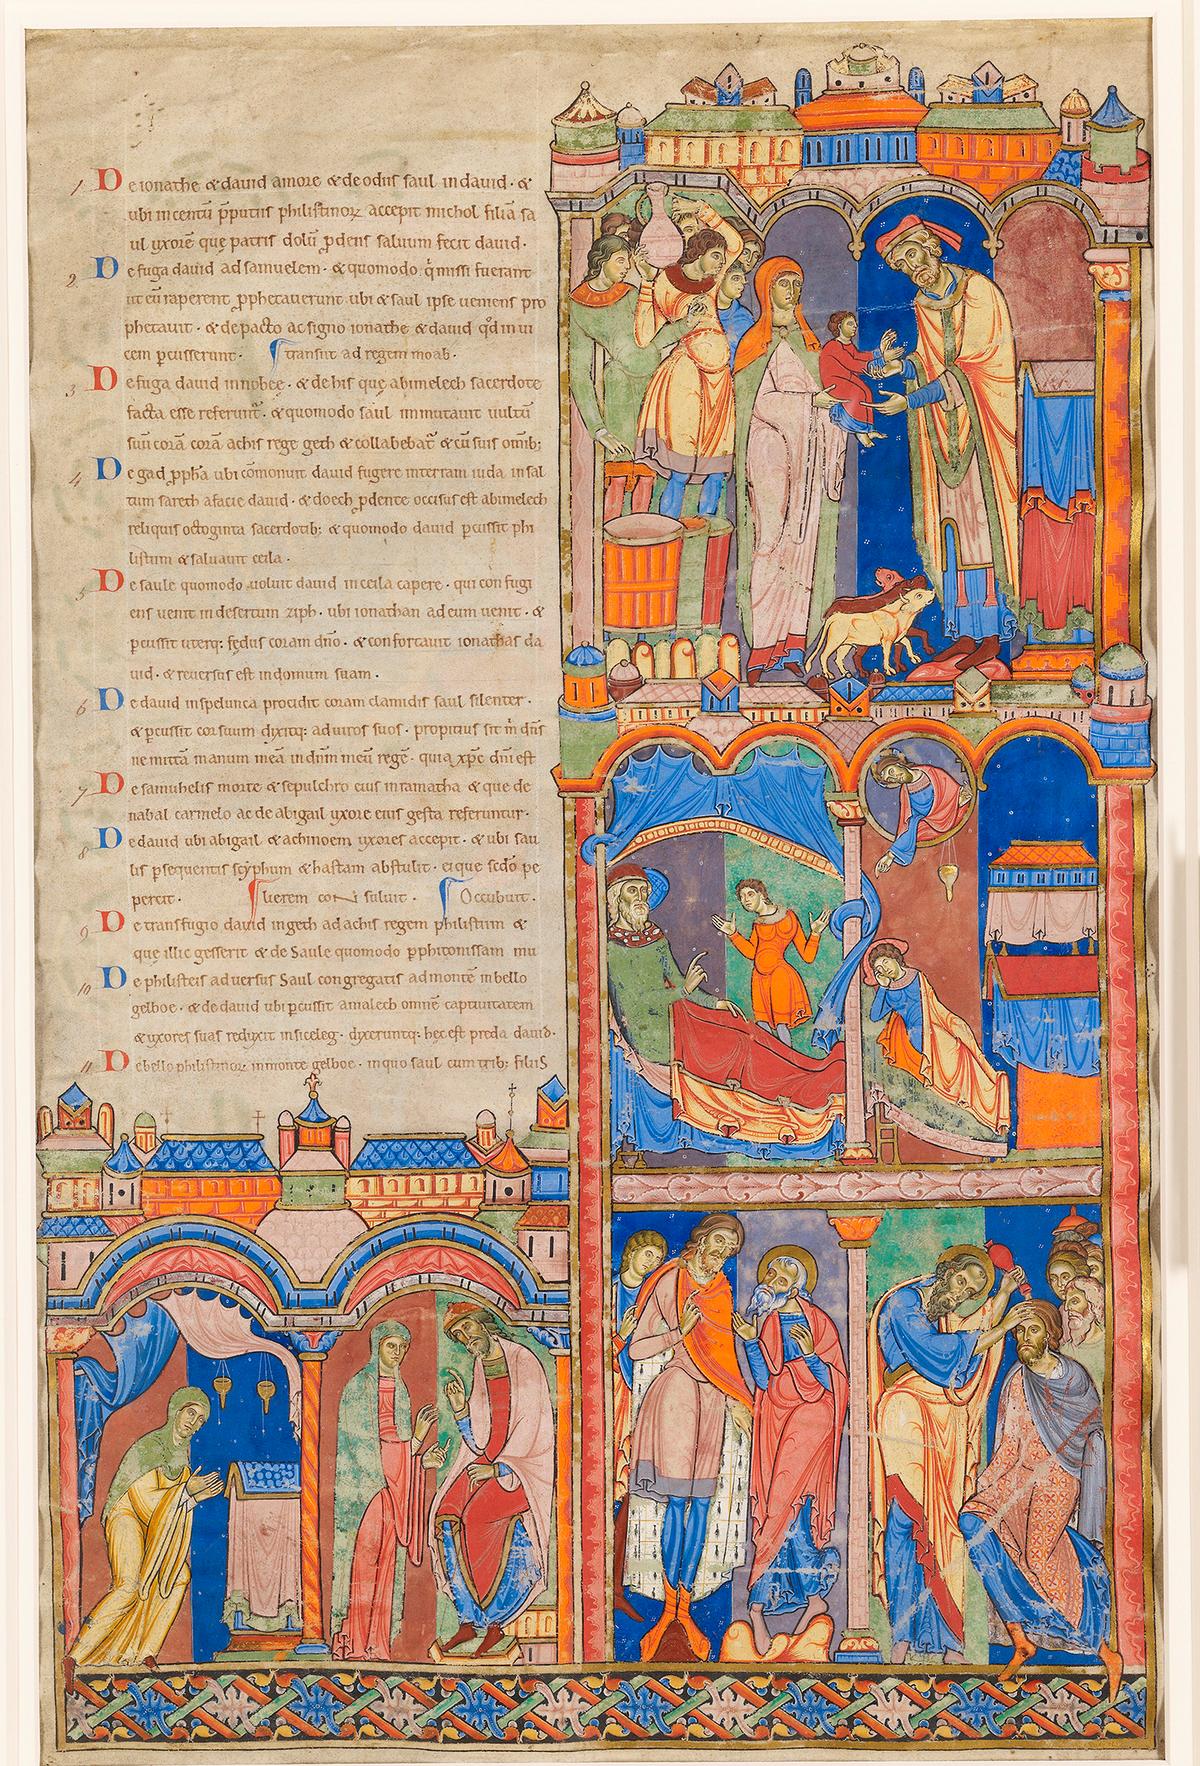 1 De ionathe & david amore & de odiis saul in david · &
ubi in centū p̄putiis philistinoꝝ accepit michol filiā sa
ul uxorē que patris dolū ꝓdens saluum fecit david ·
2 De fuga david ad samuelem · & quomodo q̇ missi fuerant
ut eū raperent ꝓphetauerunt · ubi & saul ipse ueniens pro
phetauit · & de pacto ac signo ionathe & david qd̄ in ui
cem ꝑcusserunt · transiit ad regem moab ·
3 De fuga david in nobee · & de his que abimelech sacerdote
facta esse referunt̄ · & quomodo saul immutauit uultū
suū corā corā achis rege geth & collabebat̄ & cū suis omīb;
4 De gad ꝓph̄a ubi cōmonuit david fugere in terram iuda in sal
tum sareth a facie david · & doech ꝓdente occisus est abimelech
reliquis octoginta sacerdotib; & quomodo david ꝑcussit phi
listiim & saluauit ceila ·
5 De saule quomodo uoluit david in ceila capere · qui con fugi
ens uenit in desertum ziph · ubi ionathan ad eum uenit · &
ꝑcussit uterq; fedus coram dn̄o · & confortauit ionathas da
uid · & reuersus est in domum suam ·
6 De david in spelunca procidit coram clamidis saul silenter ·
& ꝑcussit cor suum dixitq; ad uiros suos · propitius sit m̄ dn̄s
ne mittā manum meā in dn̄m meū regē · quia xp̄c dn̄i est
7 De samuhelis morte & sepulchro eius in ramatha & que de
nabal carmelo ac de abigail uxore eius gesta referuntur ·
8 De david ubi abigail & achinoem uxores accepit · & ubi sau
lis ꝑsequentis scyphum & hastam abstulit · eique scd̄o pe
percit · lierem con suluit · Occubuit ·
9 De transfugio david in geth ad achis regem philistiim &
que illic gesserit & de Saule quomodo ꝑ phitonissam mu
10 De philisteis aduersus Saul congregatis ad montē in bello
gelboe · & de david ubi ꝑcussit amalech omnē captiuitatem
& uxores suas reduxit in siceleg · dixeruntq; hec est preda david ·
11 De bello philistinoꝝ in monte gelboe · in quo saul cum trib; filiis